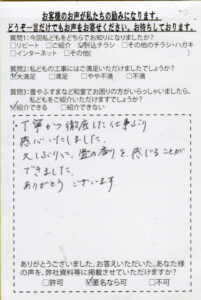 お客様のお声が私たちの励みになります。
どうぞ一言だけでもお声をお寄せください。お待ちしております。
質問1:今回私どもをどちらでお知りになりましたか?
□リピート □ご紹介 ☑折込チラシ □その他のチラシ・ハガキ
□インターネット □その他(
質問2:私どもの工事にはご満足いただけましたでしょうか?
☑大満足 □満足 □やや不満 □不満
質問3:畳やふすまなど和室でお困りの方がいらっしゃいましたら、
私どもをご紹介いただけますでしょうか?
☑紹介できる □紹介できない
丁寧かつ徹底した仕事ぶり
感心いたしました。
久しぶりに、畳の香りを感じることが
できました。
ありがとうございます。
ありがとうございました、お答えいただいた、あなた様
の声を、弊社資料等に掲載させていただけますか?
□許可 ☑匿名なら可 □不可